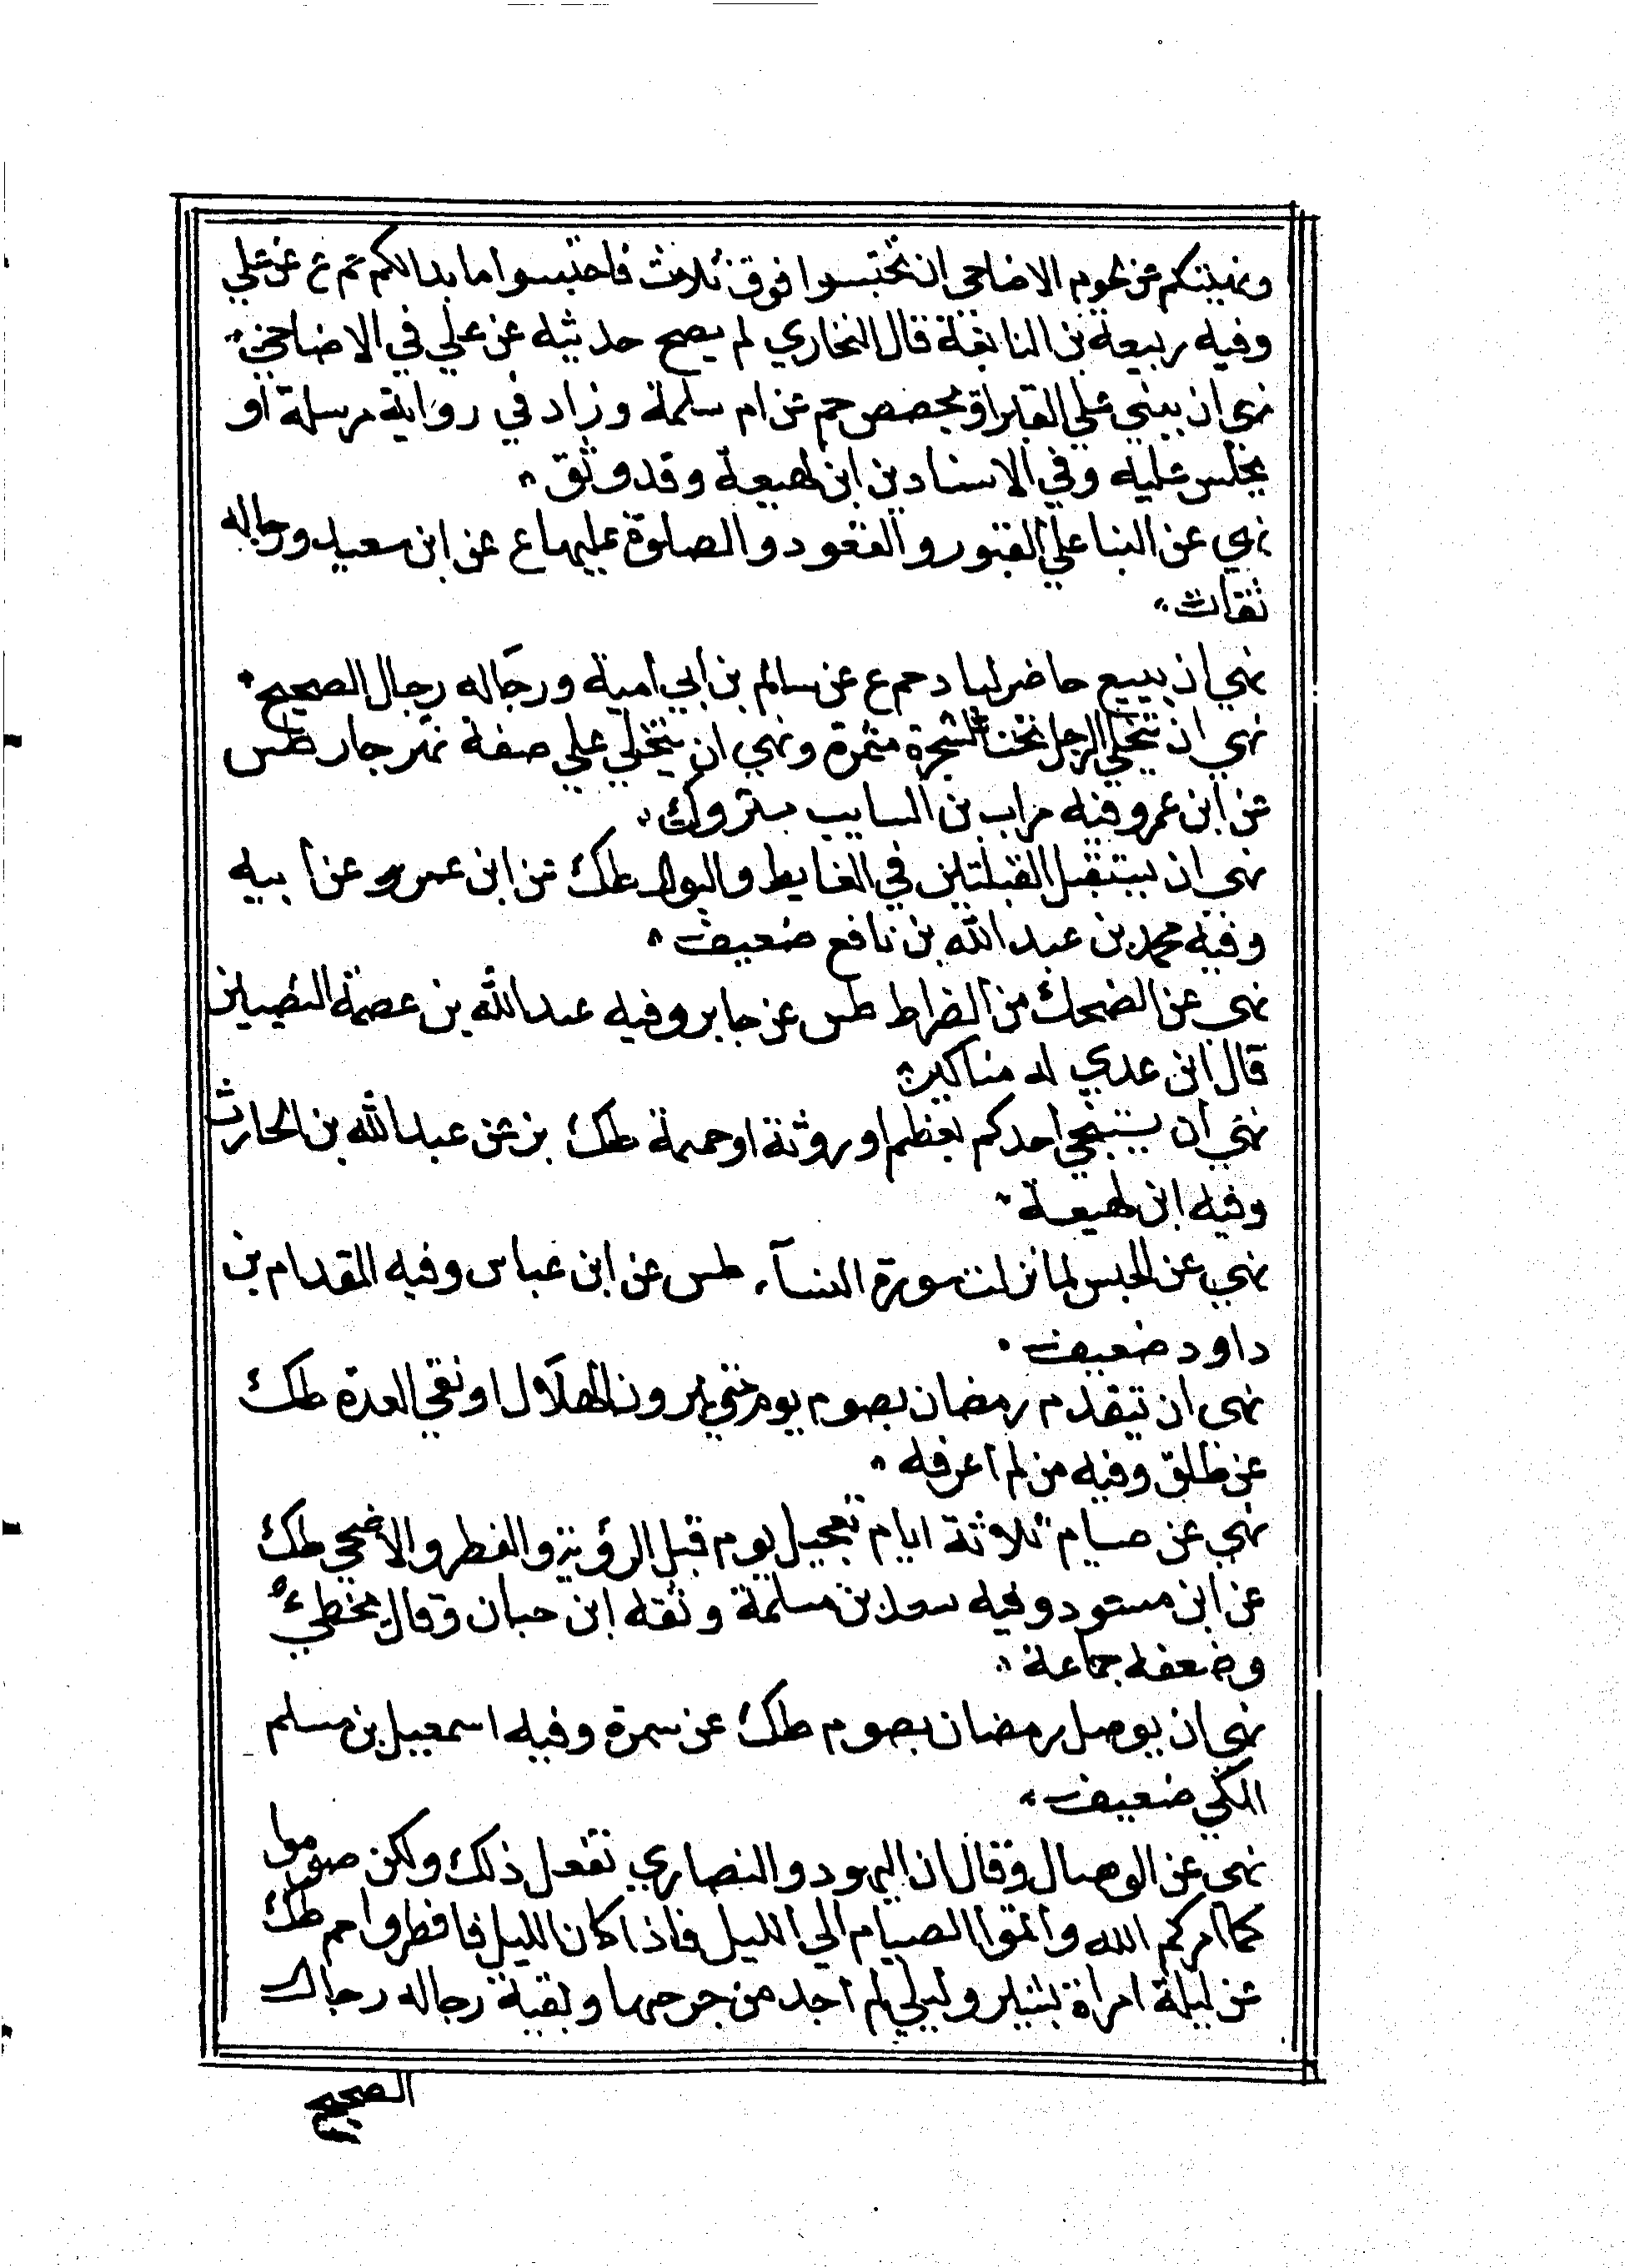 ونهيتكم عن لحوم الاضاحي ان تحتبسوا فوق ثلاث فاحتبسوا ما بدا لكم حم ع عن علي
وفيه ربيعة بن النابغة قال البخاري لم يصح حديثه عن علي في الاضاحي
نهي ان يبني علي القبر او يجصص حم عن ام سلمة وزاد في رواية مرسلة او
يجلس عليه وفي الاسنادين ابن لهيعة وقد وثق
نهي عن البنا علي القبور والقعود والصلوة عليها ع عن ابن سعيد ورجاله
ثقات
نهي ان يبيع حاضر لباد حم ع عن سالم بن ابي امية ورجاله رجال الصحيح
نهي ان يتخلي الرجل تحت الشجرة مثمرة ونهي ان يتخلي علي صفة نهر جار طس
عن ابن عمر وفيه فرات بن السايب متروك
نهي ان يستقبل القبلتين في الغايط والبول طك عن ابن عمرو عن ابيه
وفيه محمد بن عبد الله بن نافع ضعيف
نهي عن الضحك من الضراط طس عن جابر وفيه عبد الله بن عصمة النصيبين
قال ابن عدي له مناكير
نهي ان يستنجي احدكم بعظم او روثة او حممة طك بز عن عبد الله بن الحارث
وفيه ابن لهيعة
نهي عن الحبس لما نزلت سورة النسآء طس عن ابن عباس وفيه المقدام بن
داود ضعيف
نهي ان تتقدم رمضان بصوم يوم حتي يرون الهلال او نفي العدة طك
عن طلق وفيه من لم اعرفه
نهي عن صيام ثلاثة ايام تعجيل يوم قبل الرؤية والفطر والاضحي طك
عن ابن مسعود وفيه سعد بن مسلمة وثقه ابن حبان وقال يخطئ
وضعفه جماعة
نهي ان يوصل رمضان بصوم طك عن سمرة وفيه اسمعيل بن مسلم
المكي ضعيف
نهي عن الوصال وقال ان اليهود والنصاري تفعل ذلك ولكن صوموا
كما امركم الله واتموا الصيام الي الليل فاذا كان الليل فافطروا حم طك
عن ليلة امراة بشير وليلي لم اجد من جرحها وبقية رجاله رجال
الصحيح